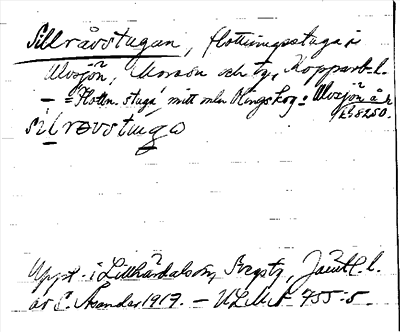 Sillråvstugan, flottningsstuga i
Ulvsjön, Morsån och ty, Kopparb. l.
— = "Flottn. stuga" mitt mln Ringskog o. Ulvsjön å k
silrøvstuga
Uppt. i Lillhärdalsön, Svegsty, Jämtl. l.
av E. Åsander 1917. — ULMA 755:5.